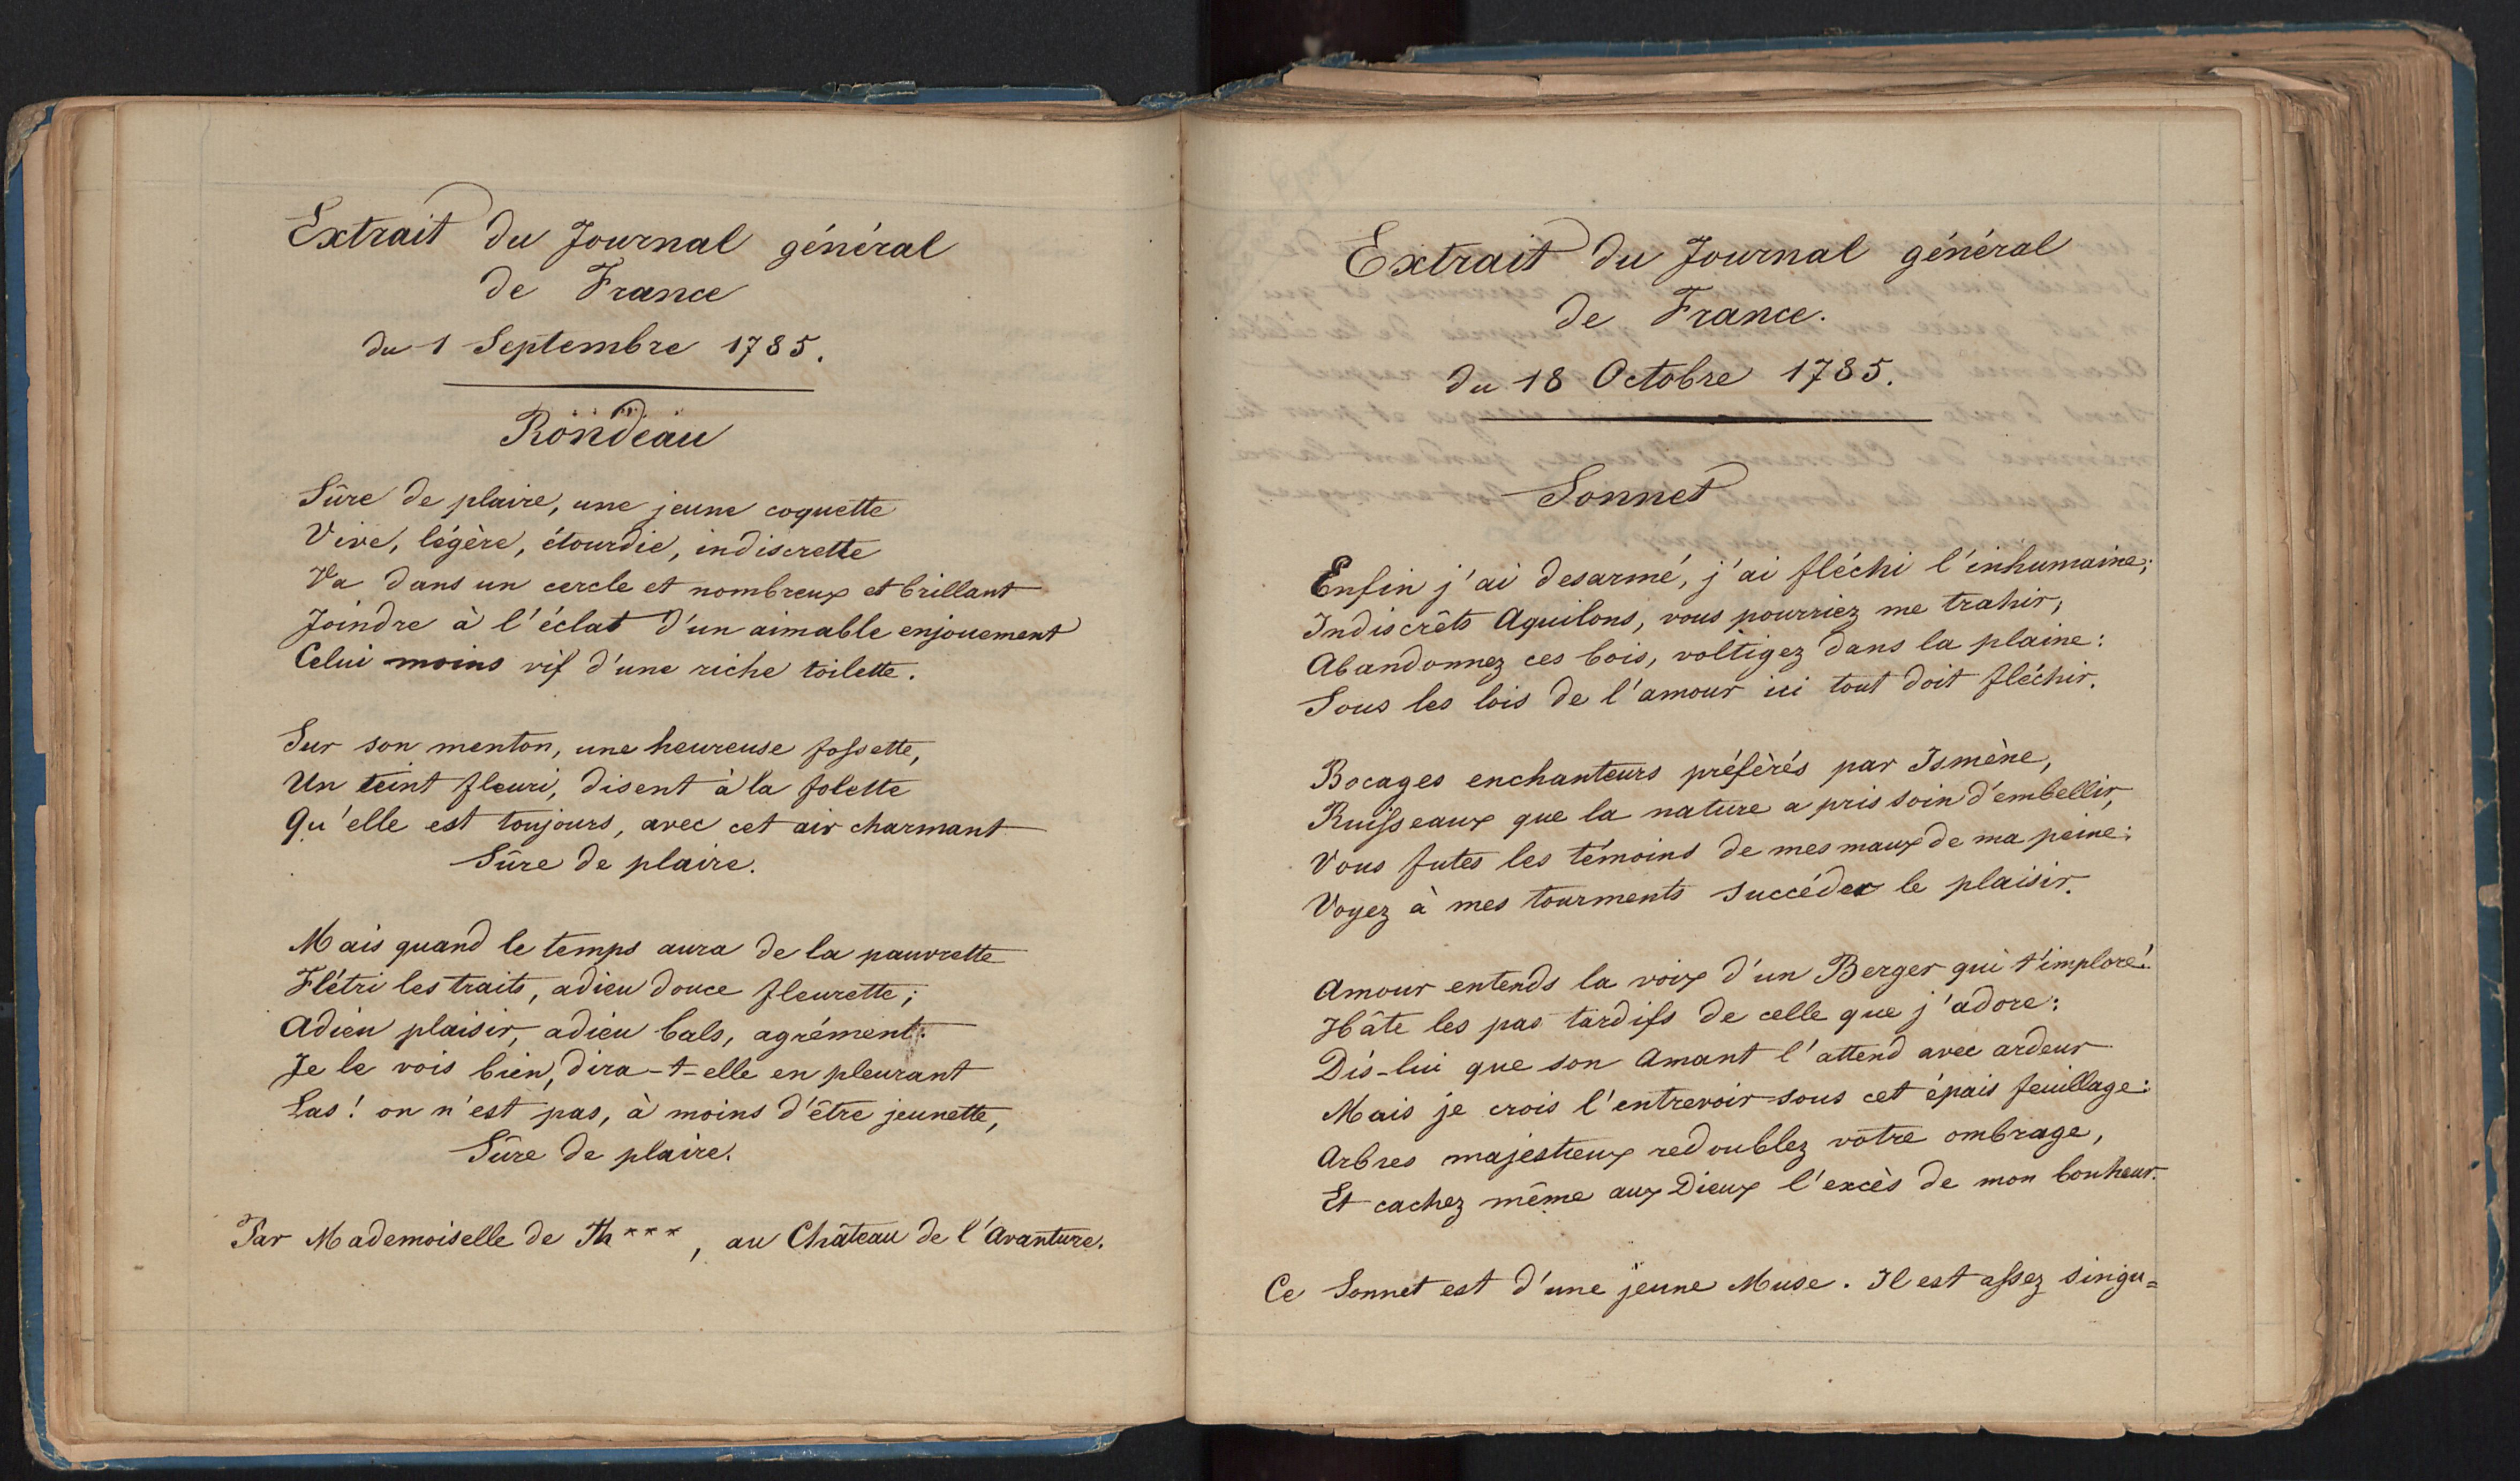 Extrait du Journal général
de France
du 1 Septembre 1785.
Rondeau
Sûre de plaire, une jeune coquette
Vive, légère, étourdie, indiscrette
Va dans un cercle et nombreux et brillant
Joindre à l'éclat d'un aimable enjouement
Celui moins vif d'une riche toilette.
Sur son menton, une heureuse fossette,
Un teint fleuri, disent à la folette
Qu'elle est toujours, avec cet air charmant
Sûre de plaire.
Mais quand le temps aura de la pauvrette
Flétri les traits, adieu douce fleurette;
Adieu plaisir, adieu bals, agrément:
Je le vois bien, dira-t-elle en pleurant
Las! on n'est pas, à moins d'être jeunette,
Sûre de plaire.
Par Mademoiselle de Th***, au Château de l'Avanture.
Extrait du Journal général
de France.
du 18 Octobre 1785.
Sonnet
Enfin j'ai desarmé, j'ai fléchi l'inhumaine;
Indiscrêts Aquilons, vous pourriez me trahir;
Abandonnez ces bois, voltigez dans la plaine:
Sous les lois de l'amour ici tout doit fléchir.
Bocages enchanteurs préférés par Ismène,
Ruisseaux que la nature a pris soin d'embellir,
Vous futes les témoins de mes maux de ma peine:
Voyez à mes tourments succéder le plaisir.
Amour entends la voix d'un Berger qui t'implore!
Hâte les pas tardifs de celle que j'adore:
Dis-lui que son Amant l'attend avec ardeur
Mais je crois l'entrevoir sous cet épais feuillage:
Arbres majestueux redoublez votre ombrage,
Et cachez même aux Dieux l'excès de mon bonheur.
Ce Sonnet est d'une jeune Muse. Il est assez singu=